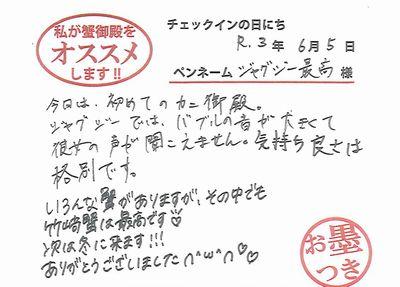 私が蟹御殿を
オススメ
します!!
チェックインの日にち
R.3年 6月5日
ペンネーム ジャグジー最高 様
今日は、初めてのカニ御殿。
ジャグジーでは、バブルの音が大きくて
彼女の声が聞こえません。気持ち良さは
格別です。
いろんな蟹がありますが、その中でも
竹崎蟹は最高です♡
次は冬に来ます!!!
ありがとうございました ∩^ω^∩♡♡
お墨
つき